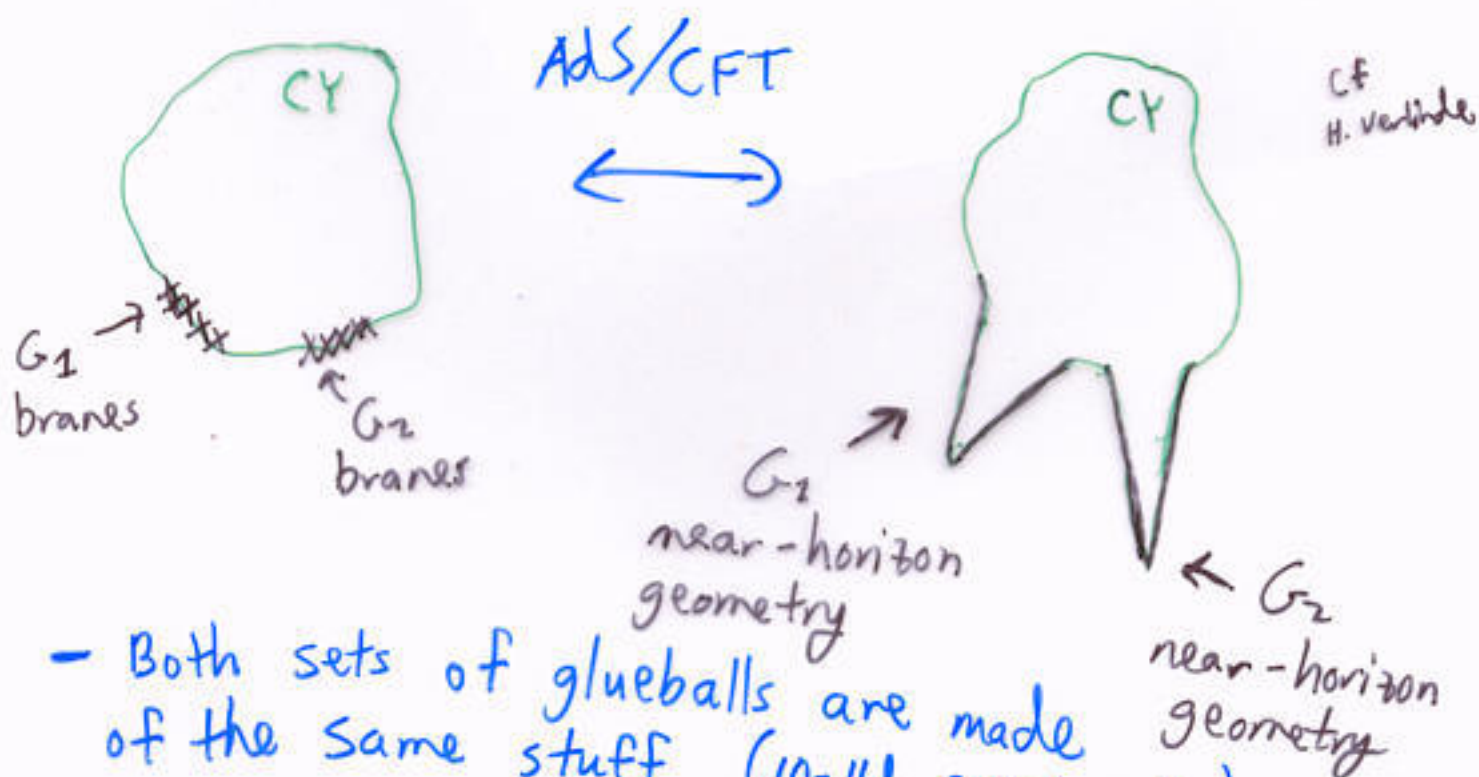 CY
AdS/CFT
CY
cf
H. Verlinde
G1
branes
G2
branes
G1
near-horizon
geometry
G2
near-horizon
geometry
- Both sets of glueballs are made
of the same stuff